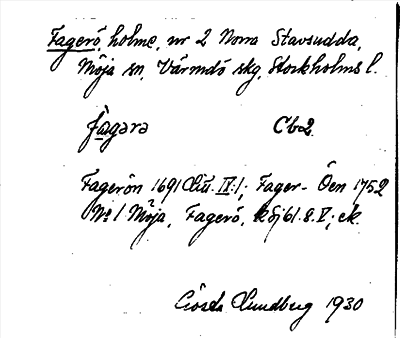 Fagerö, holme, nr 2 Norra Stavsudda,
Möja sn, Värmdö skg, Stockholms l.
fagərə Cb2
Fagerön 1691 IV:1; Fager-Öen 1752
No 1 Möja, Fagerö, 61.8.V; ek.
Gösta Lundberg 1930